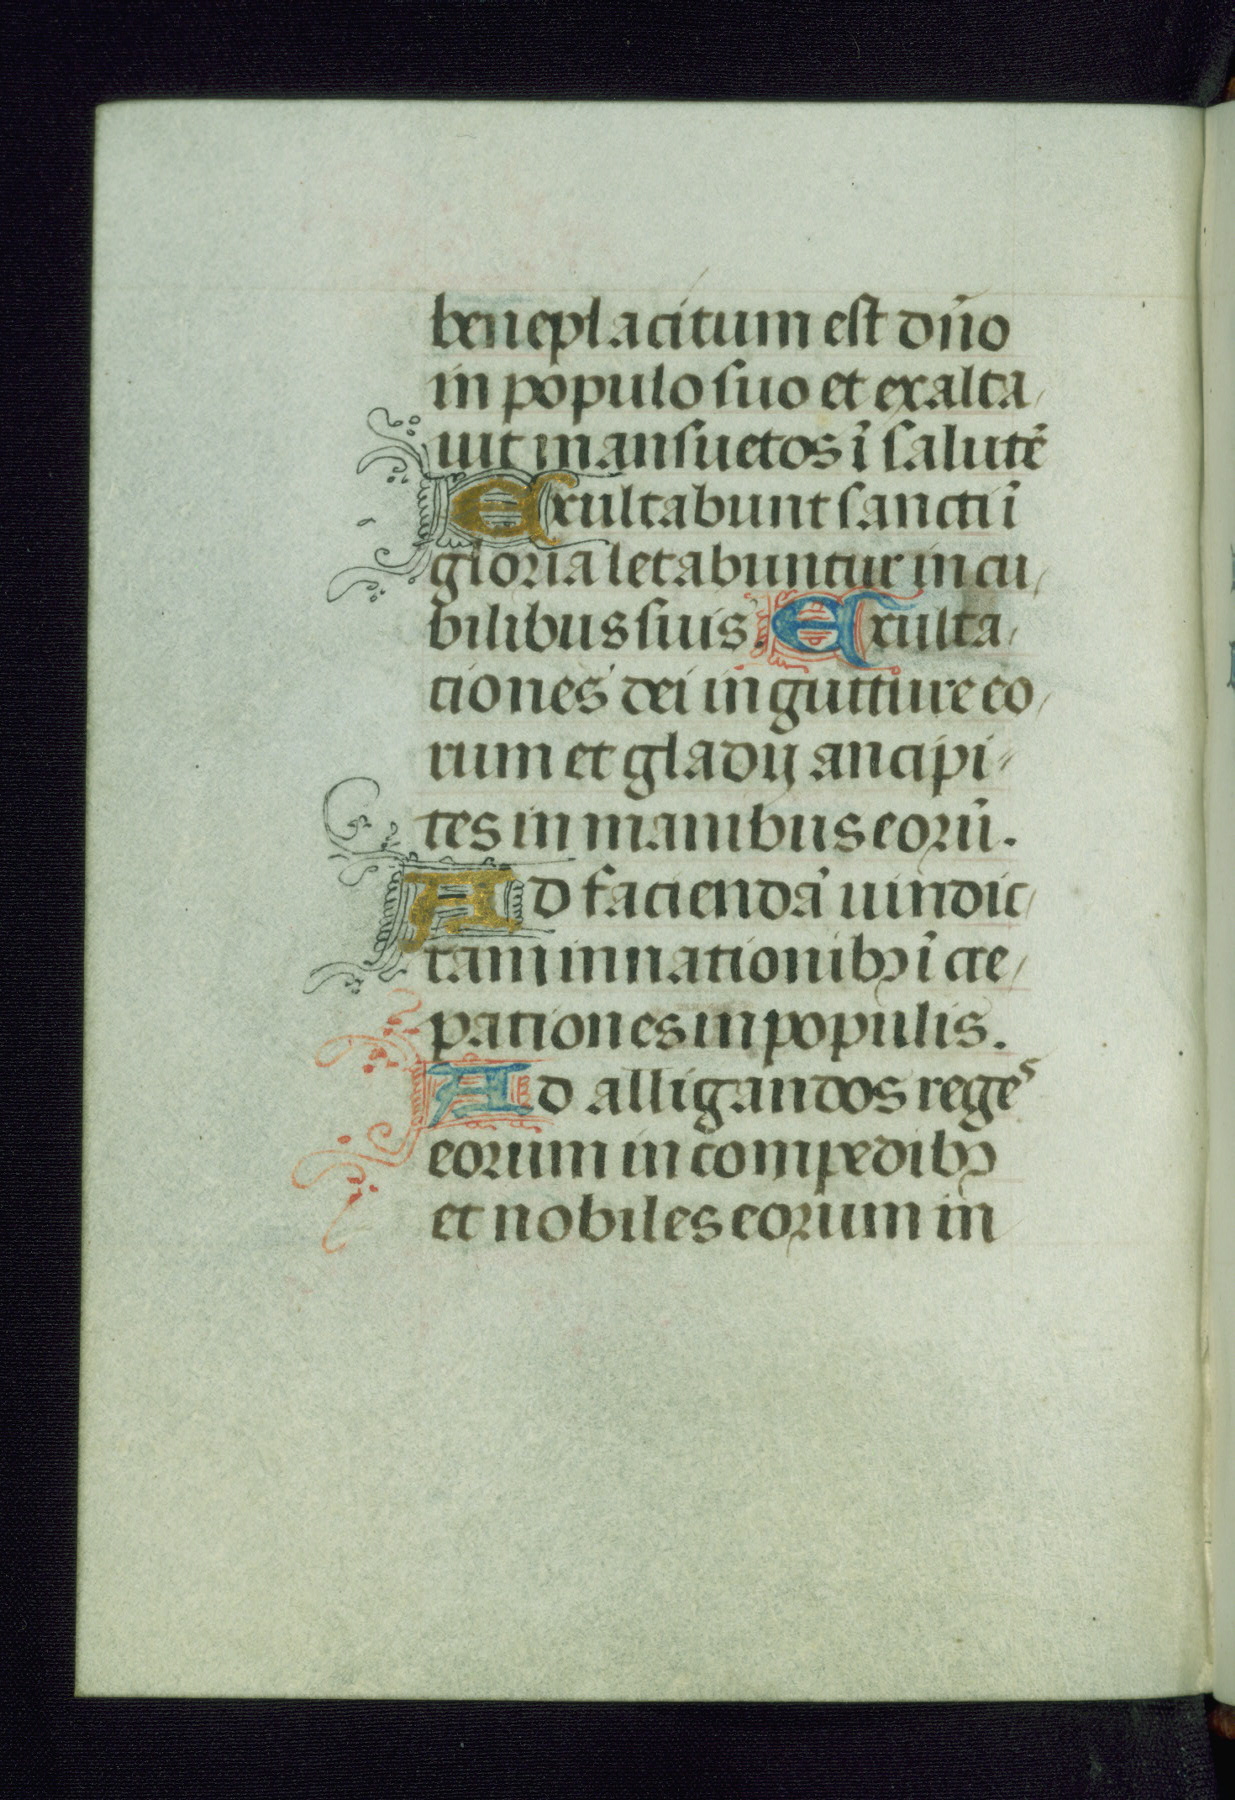 beneplacitum est dn̄o
in populo suo et exalta/
uit mansuetos ī salutē
Exultabunt sancti ī
gloria letabuntur in cu/
bilibus suis. Exulta/
tiones dei in gutture eo/
rum et gladij ancipi/
tes in manibus eorū.
Ad faciendā uindic/
tam in nationibꝫ īcre/
pationes in populis.
Ad alligandos reges
eorum in compedibꝫ
et nobiles eorum in